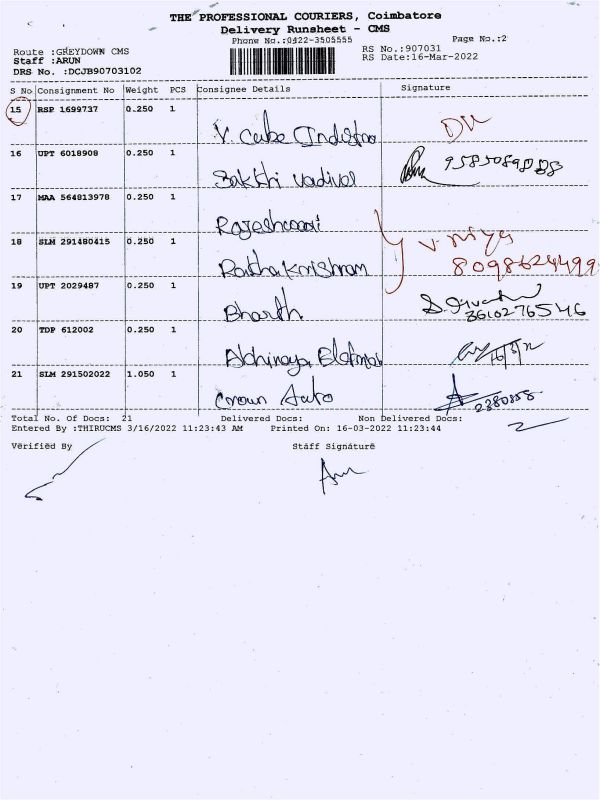 THE PROFESSIONAL COURIERS, Coimbatore
Delivery Runsheet - CMS
Phone No.:0422-3505555 Page No.:2
Route :GREYDOWN CMS RS No.:907031
Staff :ARUN RS Date:16-Mar-2022
DRS No. :DCJB90703102
S No Consignment No Weight PCS Consignee Details Signature
15 RSP 1699737 0.250 1
V. Cube
16 UPT 6018908 0.250 1
Sakthi vadivel
17 MAA 564813978 0.250 1
Rajeshwari
18 SLM 291480415 0.250 1 V. Priya
Radha Krishnan 8098624499
19 UPT 2029487 0.250 1
Bharath
20 TDP 612002 0.250 1
Abhinaya 16/3/22
21 SLM 291502022 1.050 1
Crown Auto
Total No. Of Docs: 21 Delivered Docs: Non Delivered Docs:
Entered By :THIRUCMS 3/16/2022 11:23:43 AM Printed On: 16-03-2022 11:23:44
Verified By Staff Signature